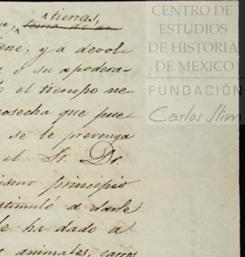 tierras,
ene, y a devolv
ó su apodera-
el tiempo ne-
cosecha que pue-
se le prevenga
el Sr. Dr.
principio
estimuló a darle
le ha dado a
animales, carros
CENTRO DE
ESTUDIOS
DE HISTORIA
DE MEXICO
FUNDACIÓN
Carlos Slim